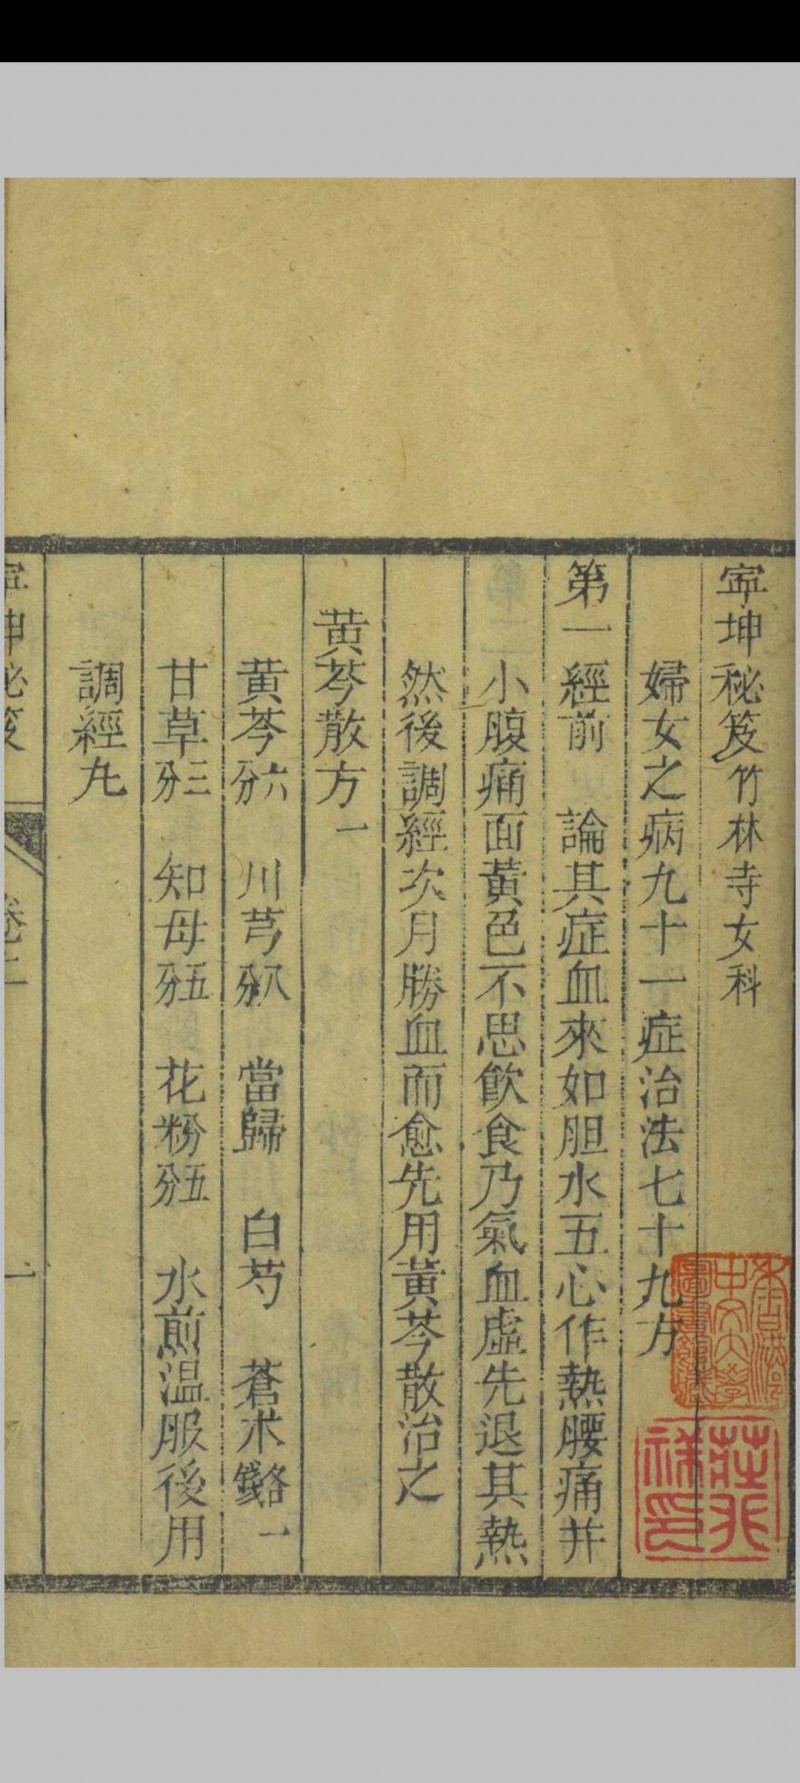 寧坤秘笈竹林寺女科
婦女之病九十一症治法七十九方
第一經前　論其症血來如胆水五心作熱腰痛并
小腹痛面黃色不思飲食乃氣血虛先退其熱
然後調經次月勝血而愈先用黃芩散治之
黃芩散方一
黃芩六分　川芎八分　當歸　白芍　蒼朮各一錢
甘草三分　知母五分　花粉五分　水煎温服後用
調經丸
寧坤秘笈　卷二　一
香港中文大學圖書館